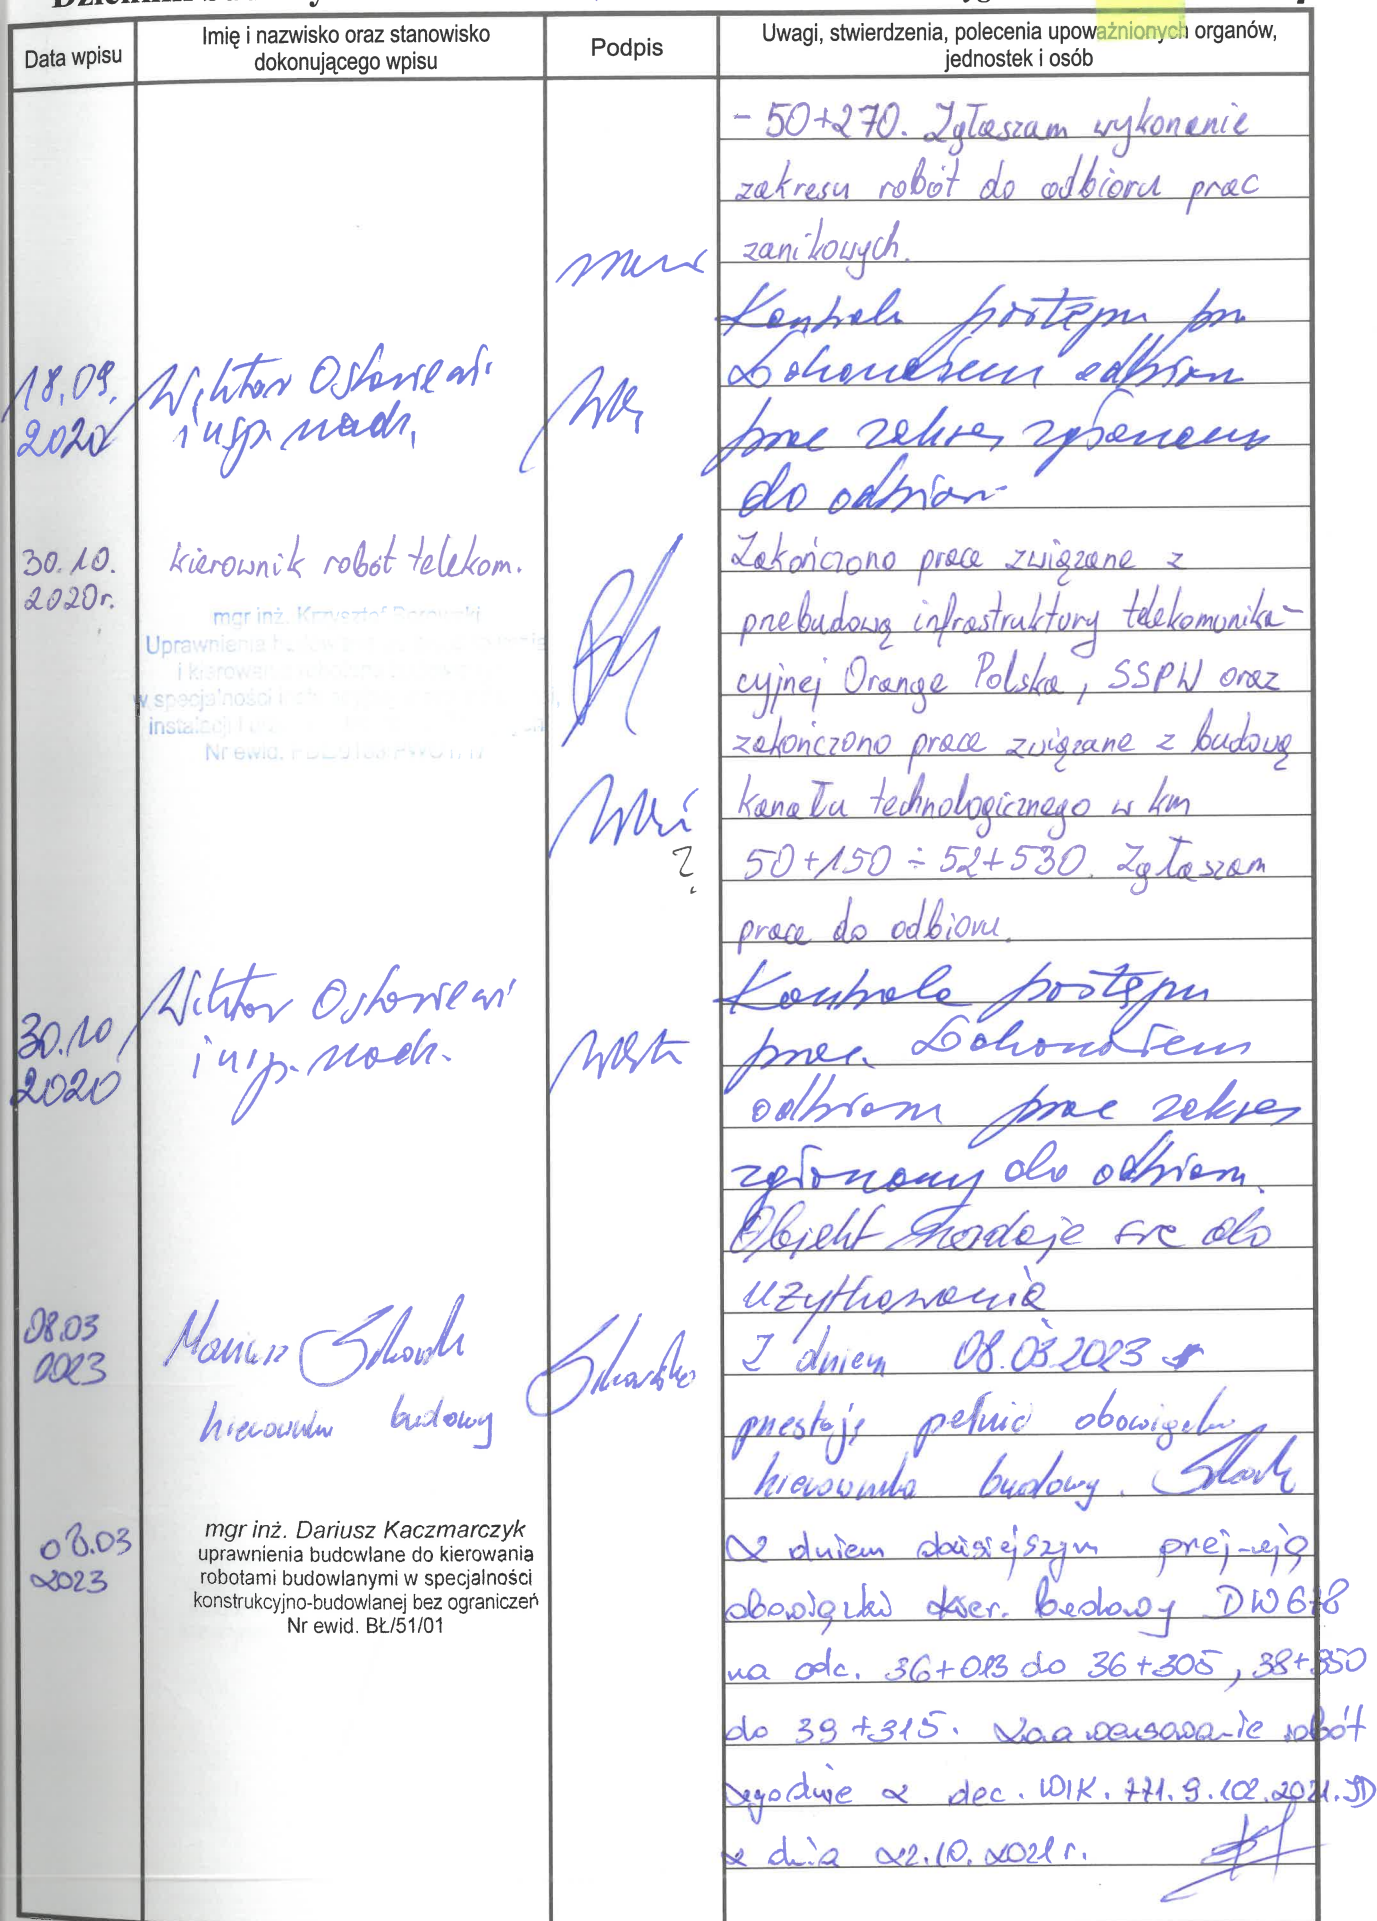 Data wpisu
Imię i nazwisko oraz stanowisko
dokonującego wpisu
Podpis
Uwagi, stwierdzenia, polecenia upoważnionych organów,
jednostek i osób
- 50+270. Zgłaszam wykonanie
zakresu robót do odbioru prac
zanikowych.
18.09.
2020
Wiktor
insp. nadr.
Kontrola postępu
Dokonałem odbioru
prac zakres zgłoszony
do odbioru
30.10.
2020r.
kierownik robót telekom.
mgr inż. Krzysztof
Uprawnienia
w specjalności
Nr ewid.
Zakończono prace związane z
przebudową infrastruktury telekomunika-
cyjnej Orange Polska, SSPW oraz
zakończono prace związane z budową
kanału technologicznego w km
50+150 ÷ 52+530. Zgłaszam
prace do odbioru.
?
30.10
2020
Wiktor
insp. nadr.
Kontrola postępu
prac. Dokonałem
odbioru prac zakres
zgłoszony do odbioru.
Obiekt nadaje się do
użytkowania
08.03
2023
Mariusz
kierownik budowy
Z dniem 08.03.2023
przestaję pełnić obowiązki
kierownika budowy.
08.03
2023
mgr inż. Dariusz Kaczmarczyk
uprawnienia budowlane do kierowania
robotami budowlanymi w specjalności
konstrukcyjno-budowlanej bez ograniczeń
Nr ewid. BŁ/51/01
Z dniem dzisiejszym przejmuję
obowiązki kier. budowy DW 678
na odc. 36+013 do 36+305, 38+350
do 39+315. Zaawansowanie robót
zgodnie z dec. WIK.771.9.102.2021.JD
z dnia 22.10.2021 r.